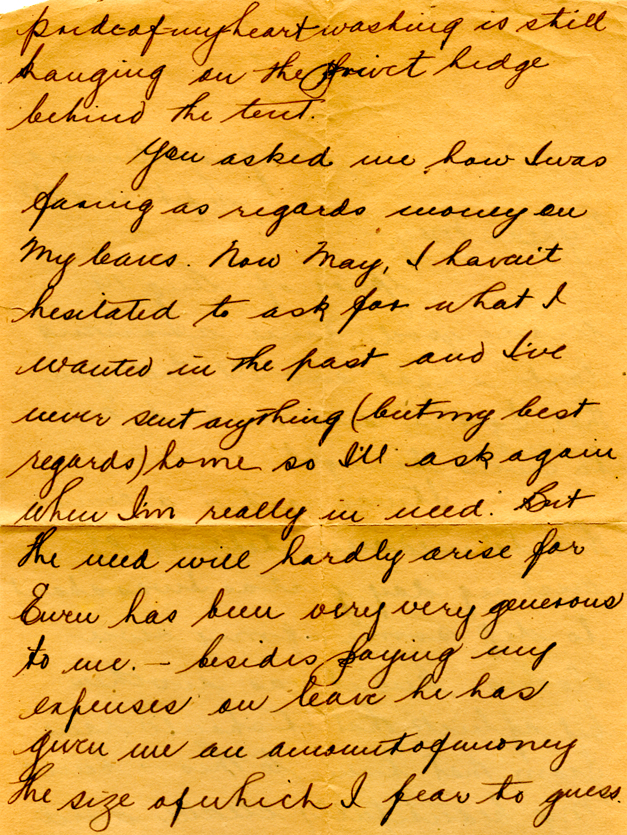 pride of my heart washing is still
hanging on the privet hedge
behind the tent.
You asked me how I was
faring as regards money on
my leave. Now May, I havn't
hesitated to ask for what I
wanted in the past and I've
never sent anything (but my best
regards) home so I'll ask again
when I'm really in need. But
the need will hardly arise for
Ewen has been very very generous
to me. – besides paying my
expenses on leave he has
given me an amount of money
the size of which I fear to guess.